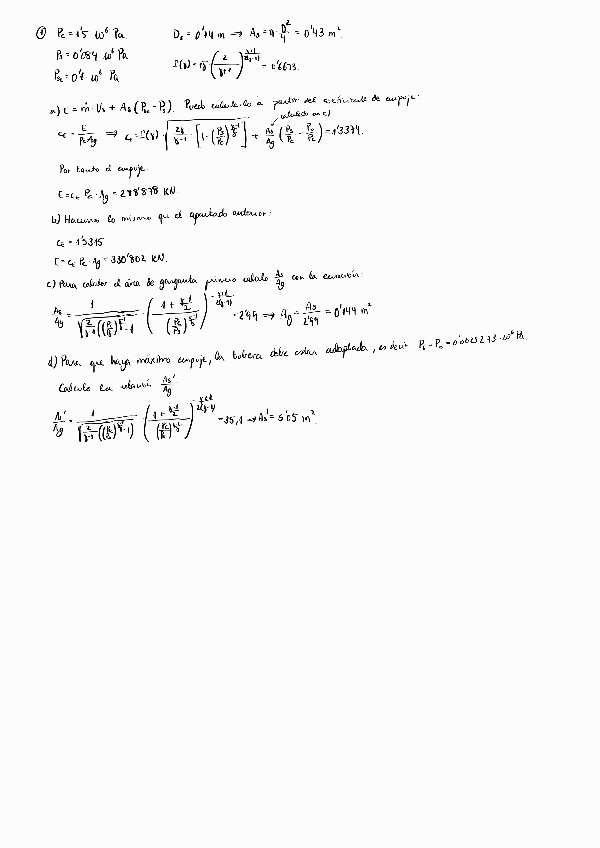 ① Pc = 1'5 · 10⁶ Pa    Ds = 0'74 m → As = π · D²/4 = 0'43 m².
Ps = 0'084 · 10⁶ Pa    Γ(γ) = √γ (2/(γ+1))^((γ+1)/(2(γ-1))) = 0'6673.
Pa = 0'1 · 10⁶ Pa
a) E = ṁ · Vs + As (Ps - Pa). Puedo calcularlo a partir del coeficiente de empuje:
calculado en c)
cE = E/(Pc Ag) ⇒ cE = Γ(γ) √(2γ/(γ-1) · [1 - (Ps/Pc)^((γ-1)/γ)]) + As/Ag (Ps/Pc - Pa/Pc) = 1'3374.
Por tanto el empuje:
E = cE · Pc · Ag = 288'878 KN.
b) Hacemos lo mismo que el apartado anterior:
cE = 1'5315
E = cE Pc · Ag = 330'802 KN.
c) Para calcular el área de garganta primero calculo As/Ag con la ecuación:
As/Ag = 1/√(2/(γ-1) ((Pc/Ps)^((γ-1)/γ) - 1)) · ((1 + (γ-1)/2)/(Pc/Ps)^((γ-1)/γ))^(-(γ+1)/(2(γ-1))) = 2'99 ⇒ Ag = As/2'99 = 0'144 m²
d) Para que haya máximo empuje, la tobera debe estar adaptada, es decir Ps = Pa = 0'0005273 · 10⁶ Pa.
Calculo la relación As'/Ag:
As'/Ag = 1/√(2/(γ-1) ((Pc/Ps)^((γ-1)/γ) - 1)) · ((1 + (γ-1)/2)/(Pc/Ps)^((γ-1)/γ))^(-(γ+1)/(2(γ-1))) = 35,1 → As' = 5'05 m².